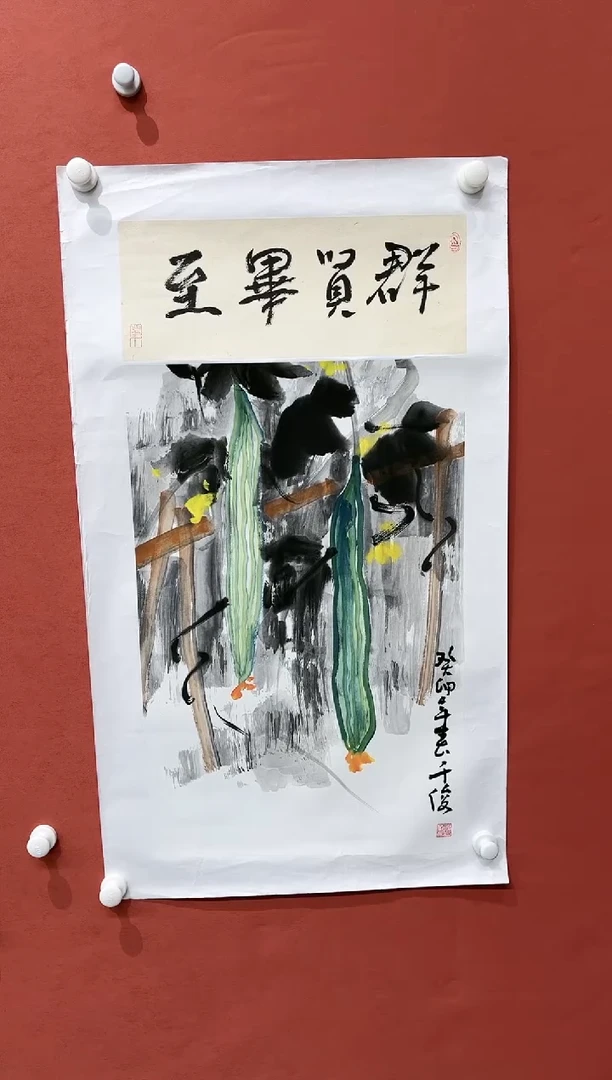 群賢畢至
癸卯年春千俊